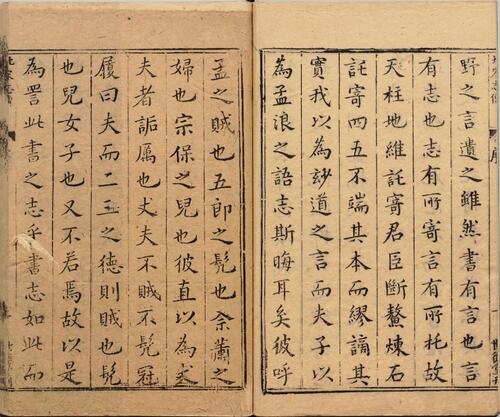 野之言遺之雖然書有言也言
有志也志有所寄言有所托故
天柱地維託寄君臣斷鰲煉石
託寄四五不端其本而繆謫其
實我以為玅道之言而夫子以
為孟浪之語志斯晦耳矣彼呼
孟之賊也五郎之髡也余蘭之
婦也宗保之兒也彼直以為犬
夫者詬厲也丈夫不賊不髡冠
履曰夫而二五之德則賊也髡
也兒女子也又不若焉故以是
為詈此書之志乎書志如此而
序